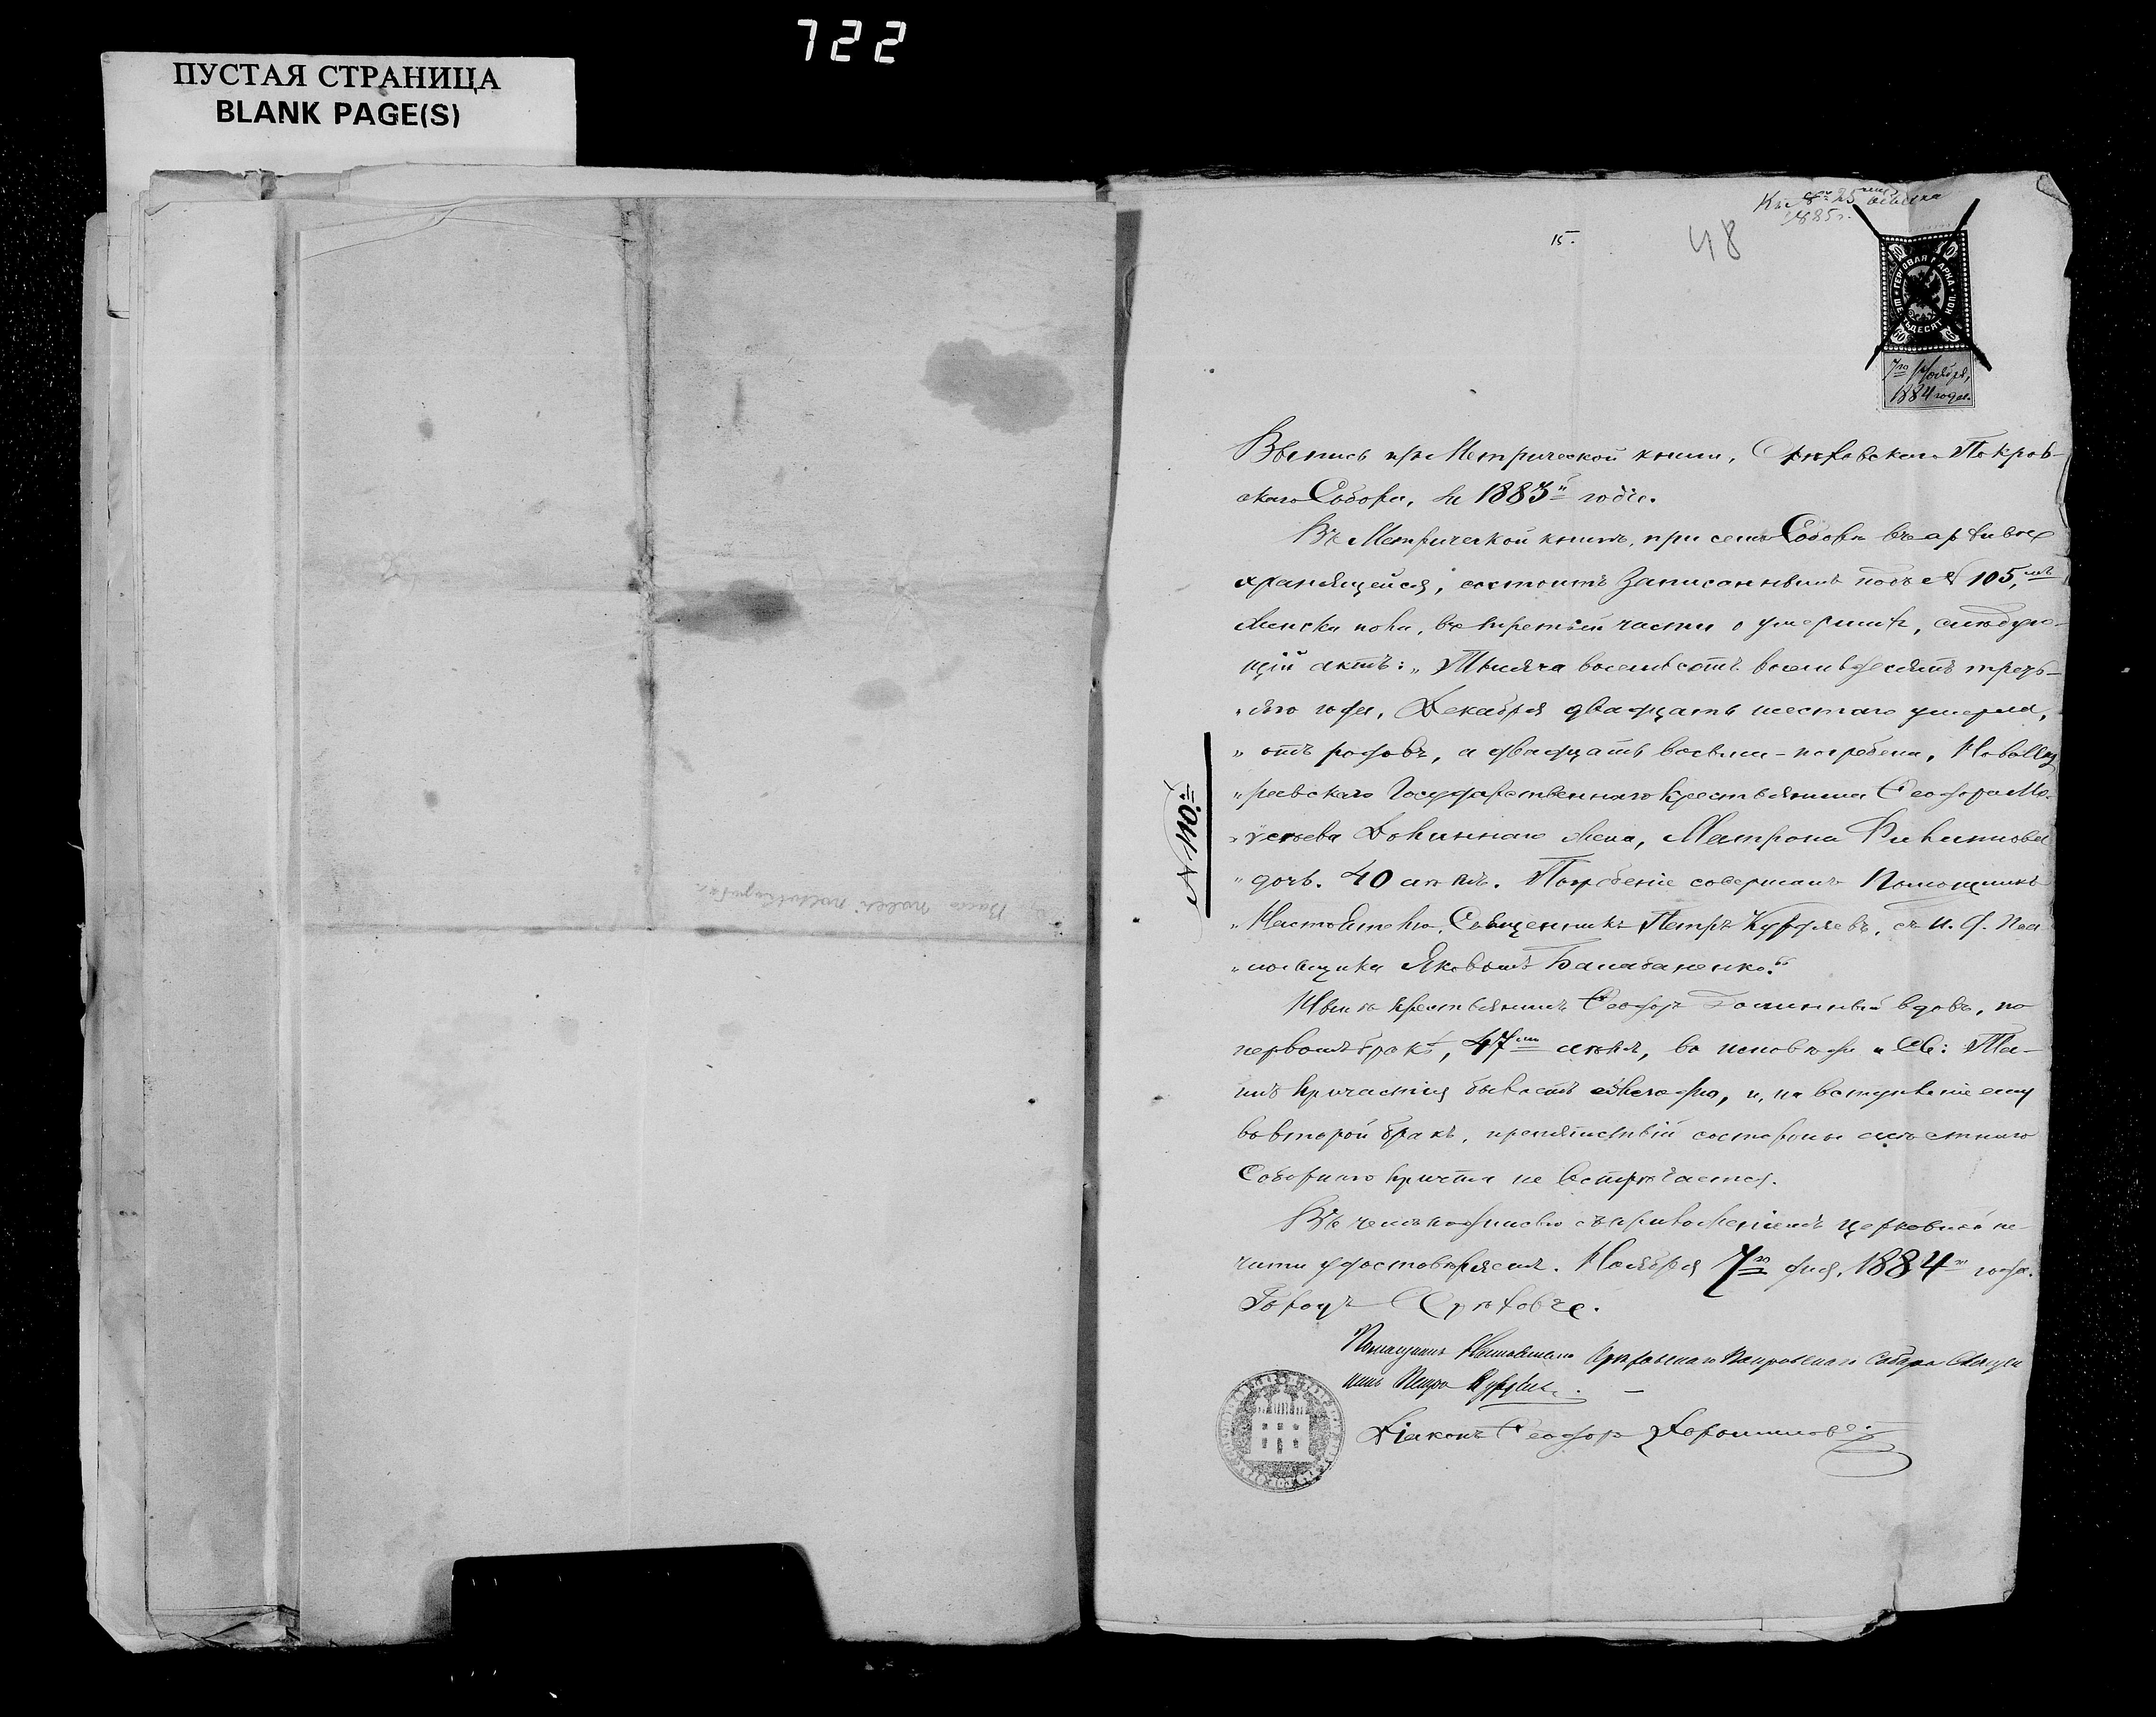 722
ПУСТАЯ СТРАНИЦА
BLANK PAGE(S)
15.
48
1885 г.
ГЕРБОВАЯ МАРКА
7го Ноября,
1884 года.
Выпись изъ Метрической книги, Орѣховскаго Покров-
скаго Собора, за 1883й годъ.
Въ Метрической книгѣ, при семъ Соборѣ въ архивѣ
хранящейся, состоитъ записаннымъ подъ № 105,мъ
женска пола, въ третьей части о умершихъ, слѣдую-
щій актъ: „Тысяча восемьсотъ восемьдесятъ треть-
„яго года, Декабря двадцать шестаго умерла,
„отъ родовъ, а двадцать восьмаго погребена,
„Государственнаго Крестьянина Ѳеодора Мо-
„ѵсѣева жена, Матрона Филиппова
„дочь. 40 лѣтъ. Погребеніе совершалъ Помощникъ
„Настоятеля, Священникъ Петръ съ и. д. Пса
„ломщика Яковомъ Балабаненко.“
№ 110.
Нынѣ крестьянинъ Ѳеодоръ вдовъ, по
первомъ бракѣ, 47ми лѣтъ, во исповѣди и Св: Та-
инъ причастія бываетъ ежегодно, и, на вступленіе ему
во второй бракъ, препятствій со стороны мѣстнаго
Соборнаго причта не встрѣчается.
Въ чемъ подписью съ приложеніемъ церковной пе-
чати удостовѣряемъ. Ноября 7го дня, 1884го года.
Городъ Орѣховъ.
Помощникъ Настоятеля Орѣховскаго Покровскаго Собора Священ
никъ Петръ
Діаконъ Ѳеодоръ